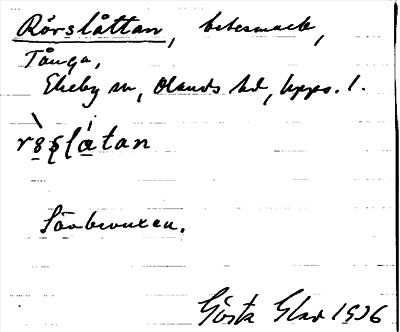 Rörslåttan, betesmark,
Tånga,
Ekeby sn, Olands hd, Upps. l.
Sönbevuxen.
Gösta Glad 1936